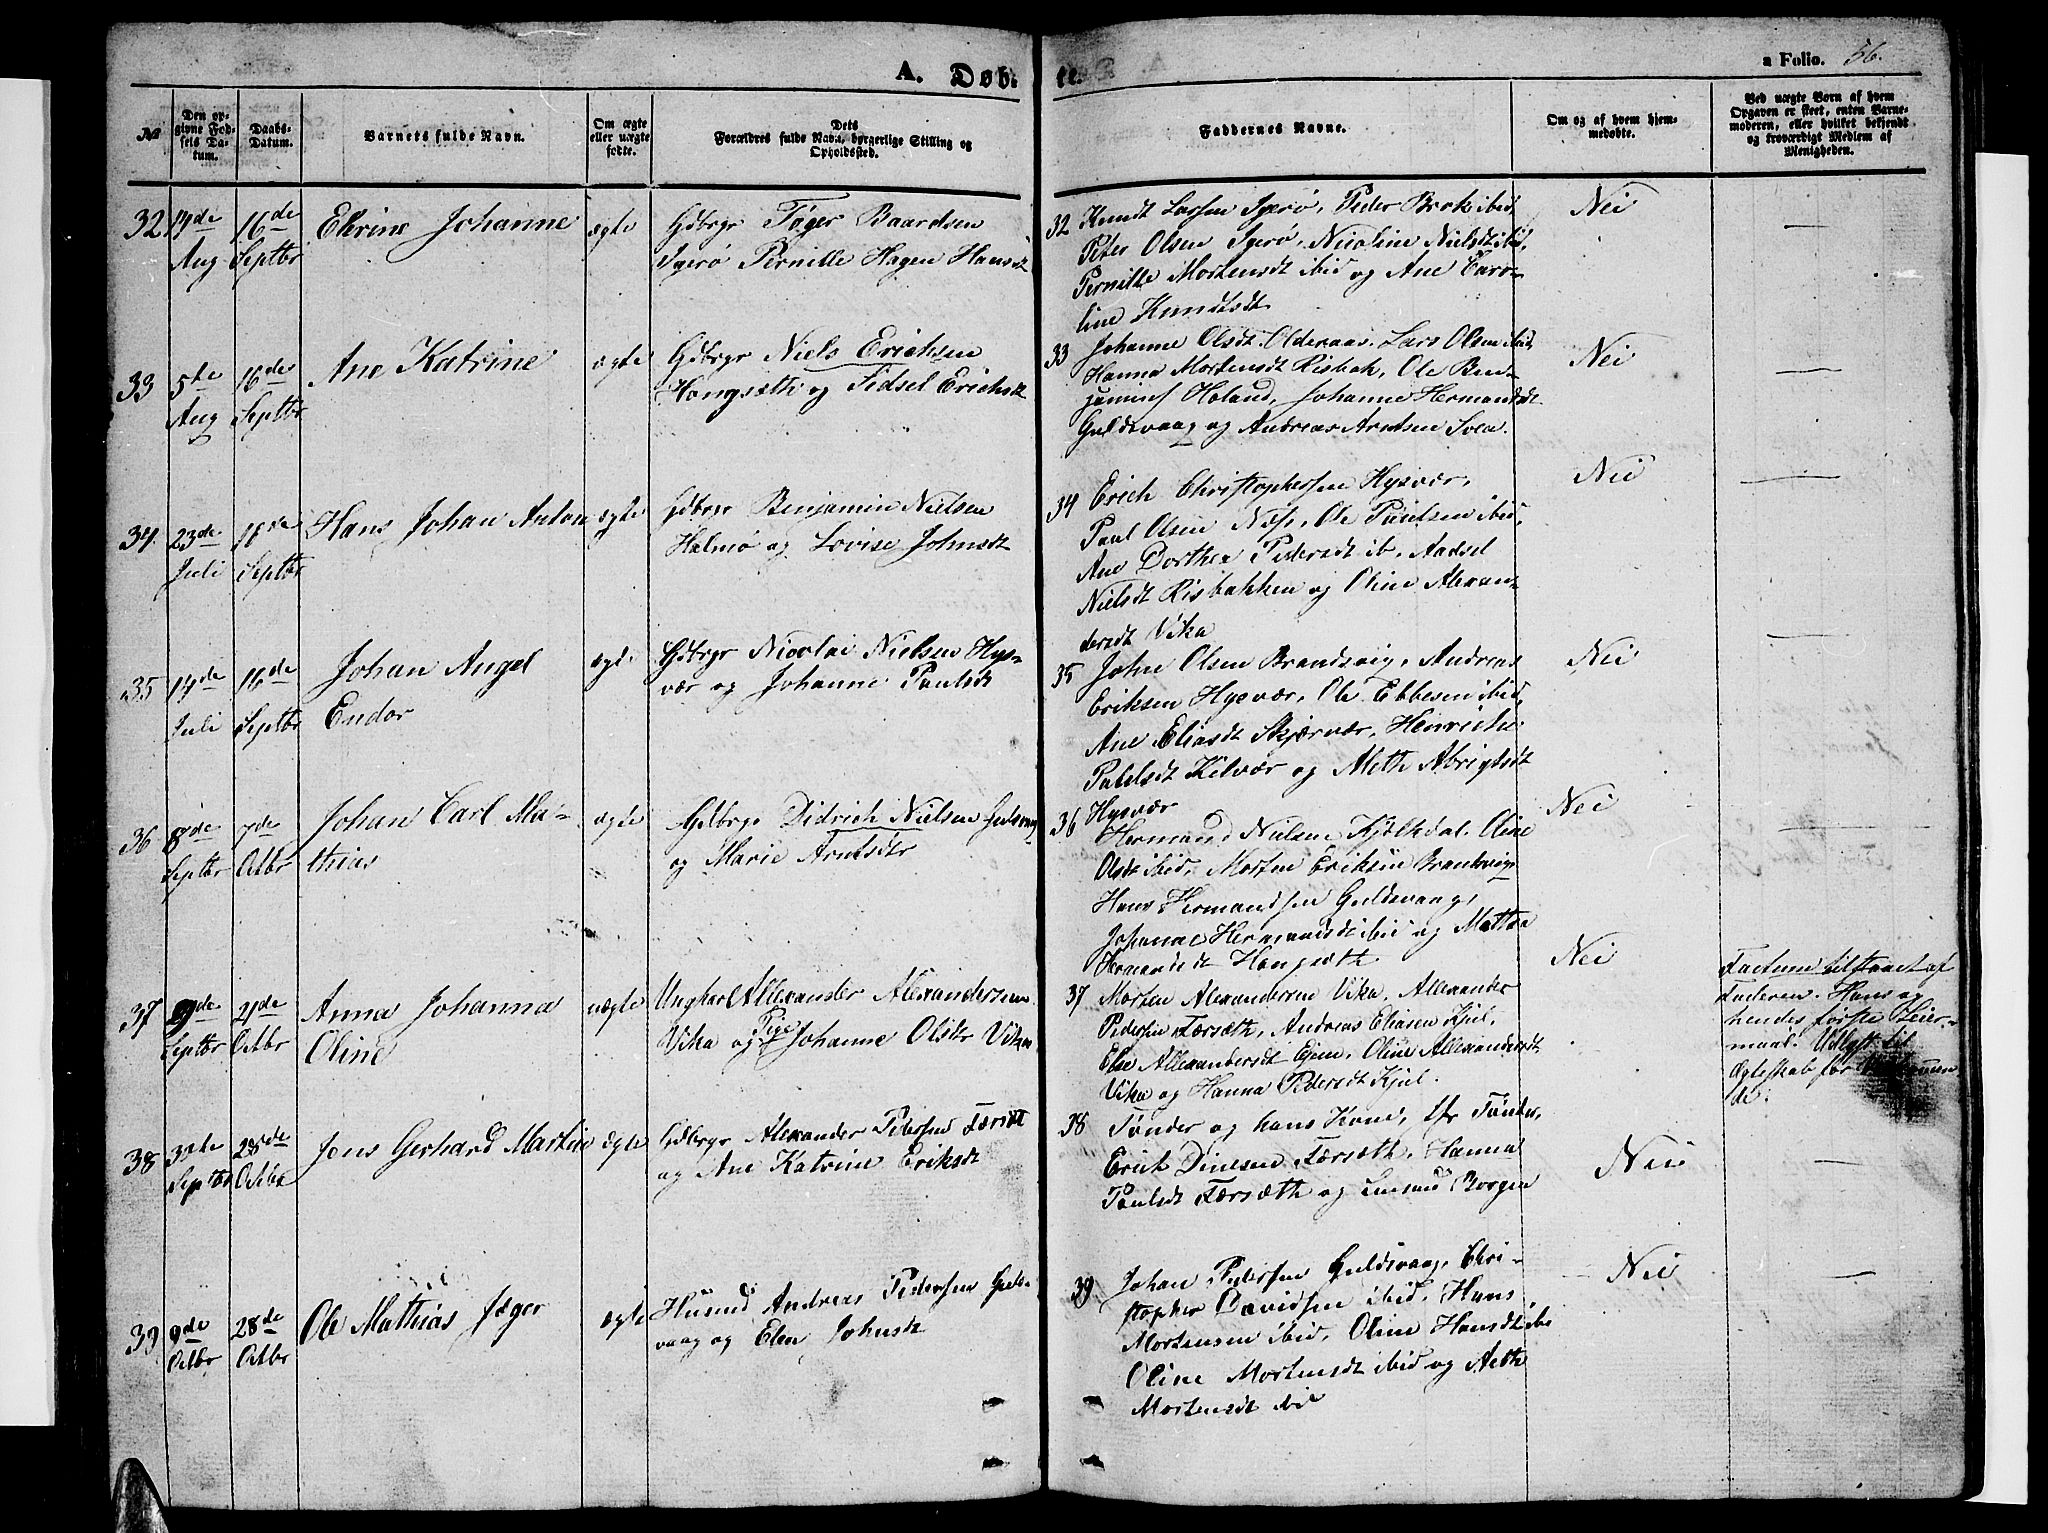 A. Døb-
te.
a Folio. 56.
No
Den op-
givne Fød-
sels Da-
tum.
Daabs-
Datum.
Barnets fulde Navn.
Om ægte
eller uægte
fødte.
Dets
Forældres fulde Navn, borgerlige Stilling og
Opholdssted.
Faddernes Navne.
Om og af hvem hjem-
medøbte.
Ved uægte Børn af hvem
Opgaven er skeet, enten Barne-
moderen, eller hvilket bekjendt
og troværdigt Medlem af
Menigheden.
32 14de 16de Elerine Johanne ægte Gdbrgr Tøger Baardsen
Aug Septbr Igerø Pernille Hagen Hansdt
32 Knudt Larsen Igerø, Peder Brok ibid, Nei
Peter Olsen Igerø, Nicoline Nielsdt ibid,
Pernille Mortensdt ibid og Ane Caro-
line Knudtsdt
33 5te 16de Ane Katrine ægte Gdbrgr Niels Erichsen
Aug Septbr Hongsæth og Sidsel Erichsdt
33 Johanne Olsdt Olderaas, Lars Olsen ibid, Nei
Hanna Mortensdt Risbak, Ole Ben-
jamins Holand, Johanne Hermandsdt
Guldsvaag og Andreas Arntsen Svea.
34 23de 16de Hans Johan Anton ægte Gdbrgr Benjamin Nielsen
Juli Septbr Halmø og Lovise Johnsdt
34 Erich Christophersen Hysvær, Nei
Paul Olsen Næs, Ole Paulsen ibid,
Ane Dorthea Pedersdt ib, Aadsel
Nielsdt Risbakken og Oline Alexan-
dersdt Vika
35 14de 16de Johan Angel ægte Gdbrgr Nicolai Nielsen Hys-
Juli Septbr Endor vær og Johanne Paulsdt
35 John Olsen Brandsvig, Andreas Nei
Eriksen Hysvær, Ole Ebbesen ibid,
Ane Eliasdt Skjærvær, Henriche
Paulsdt Kilvær og Meth Abrigtsdt
Hysvær
36 8de 7de Johan Carl Ma- ægte Gdbrgr Didrich Nielsen Gulsvaag
Septbr Octbr thias og Marie Arntsdtr
36 Hermand Nielsen Kjølkdal, Oline Nei
Olsdt ibid, Morten Eriksen Brandsvig
Hans Hermandsen Guldsvaag,
Johanne Hermansdt ibid og Mathea
Hermandsdt Hongsæth
37 9de 21de Anna Johanna uægte Ungkarl Allexander Alexandersen
Septbr Octbr Oline Vika og Pige Johanne Olsdtr Vika
37 Morten Alexandersen Vika, Allexander Nei
Pedersen Færsæth, Andreas Eliasen Kjul,
Else Allexandersdt Ejem, Oline Allexandersdt
Vika og Hanna Pedersdt Kjul.
Factum tilstaaet af
Faderen. Hans og
hendes første Leier-
maal. Udlyst til
Ægteskab før
de.
38 30te 28de Jens Gerhard Martin ægte Gdbrgr Alexander Pedersen Færsæt
Septbr Octbr og Ane Katrine Eriksdt
38 Tønder og hans Kone, Tønder,
Erich Dinesen Færsæth, Hanna Nei
Paulsdt Færsæth og Borgen
39 9de 28de Ole Mathias Jæger ægte Husmd Andreas Pedersen Guls-
Octbr Octbr vaag og Elen Johnsdt
39 Johan Pedersen Guldsvaag, Chri- Nei
stopher Davidsen ibid, Hans
Mortensen ibid, Oline Hansdt ib
Oline Mortensdt ibid og Meth
Mortensdt ibid